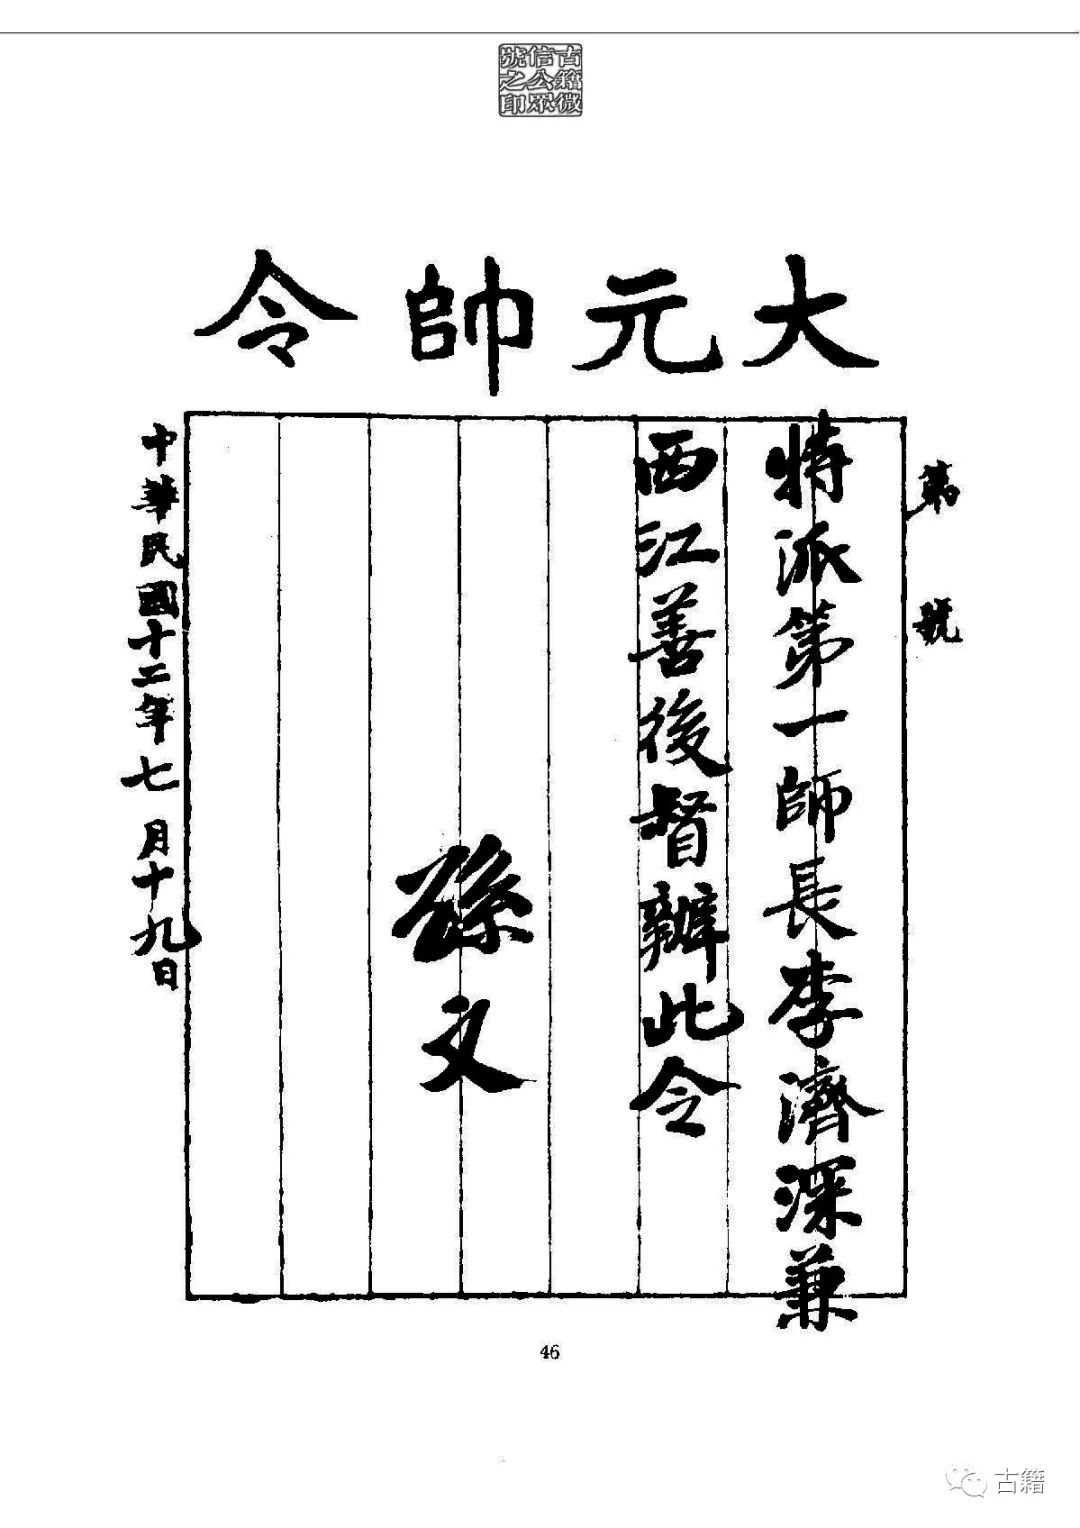 古籍微
信公眾
號之印
大元帥令
第 號
特派第一師長李濟深兼
西江善後督辦此令
孫文
中華民國十二年七月十九日
46
古籍